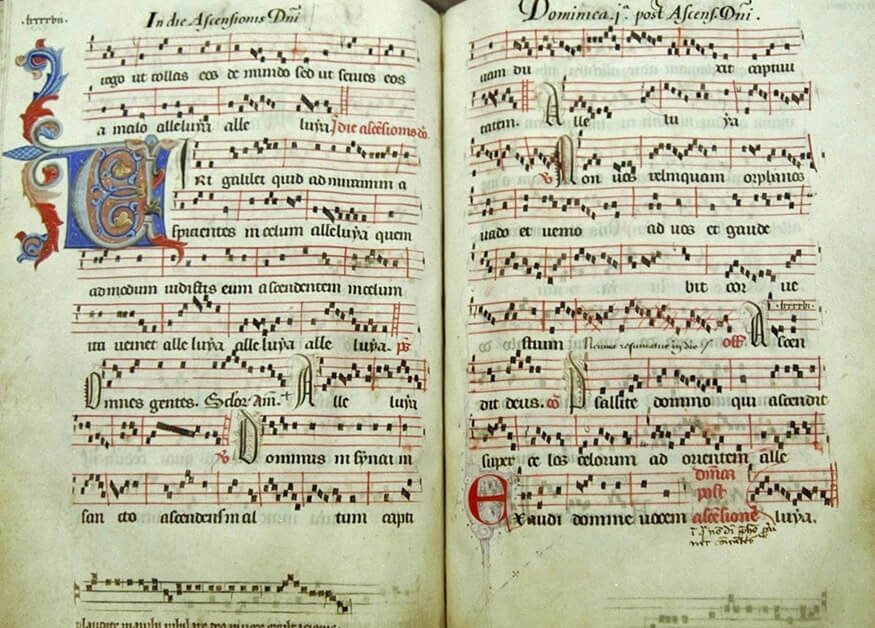 .lxxxvii.
In die Ascensionis Dnī
rogo ut tollas eos de mundo sed ut serues eos
a malo alleluya alle luya In die ascēsionis
Uiri galilei quid admiramini a
spicientes in celum alleluya quem
admodum uidistis eum ascendentem incelum
ita ueniet alle luya alle luya alle luya. ps
Omnes gentes. Alle luya
℣ Dominus in synai in
san cto ascendens in al tum capti
plaudite manibus
Dominica .jª. post Ascens. Dnī.
uam du xit captiui
tatem. Alle lu ya
℣ Non uos relinquam orphanos
uado et uenio ad uos et gaude
bit cor ue
strum off Ascen
dit deus. cō Psallite domino qui ascendit
super ce los celorum ad orientem alle
dn̄ica
post
Exaudi domine uocem ascēsionē luya.